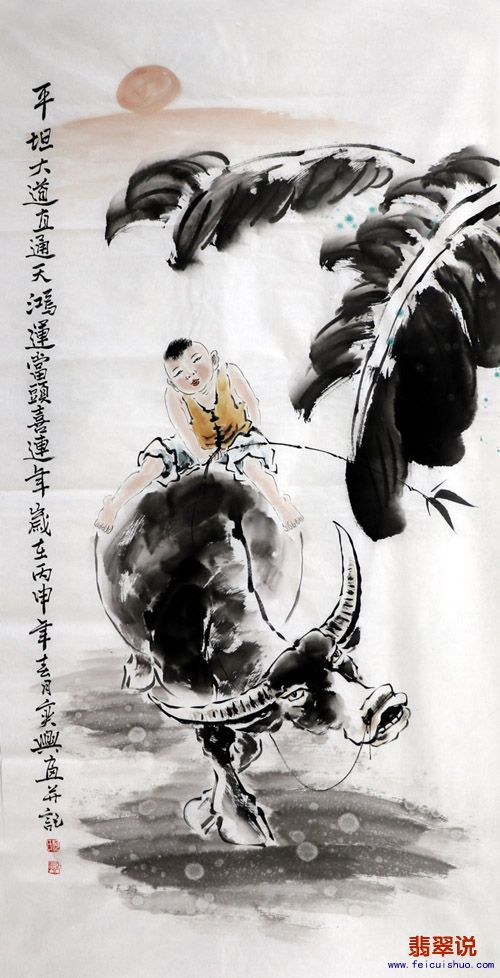 平坦大道直通天鸿運當頭喜連年歲在丙申年春月奕興畫并記
翡翠说
www.feicuishuo.com